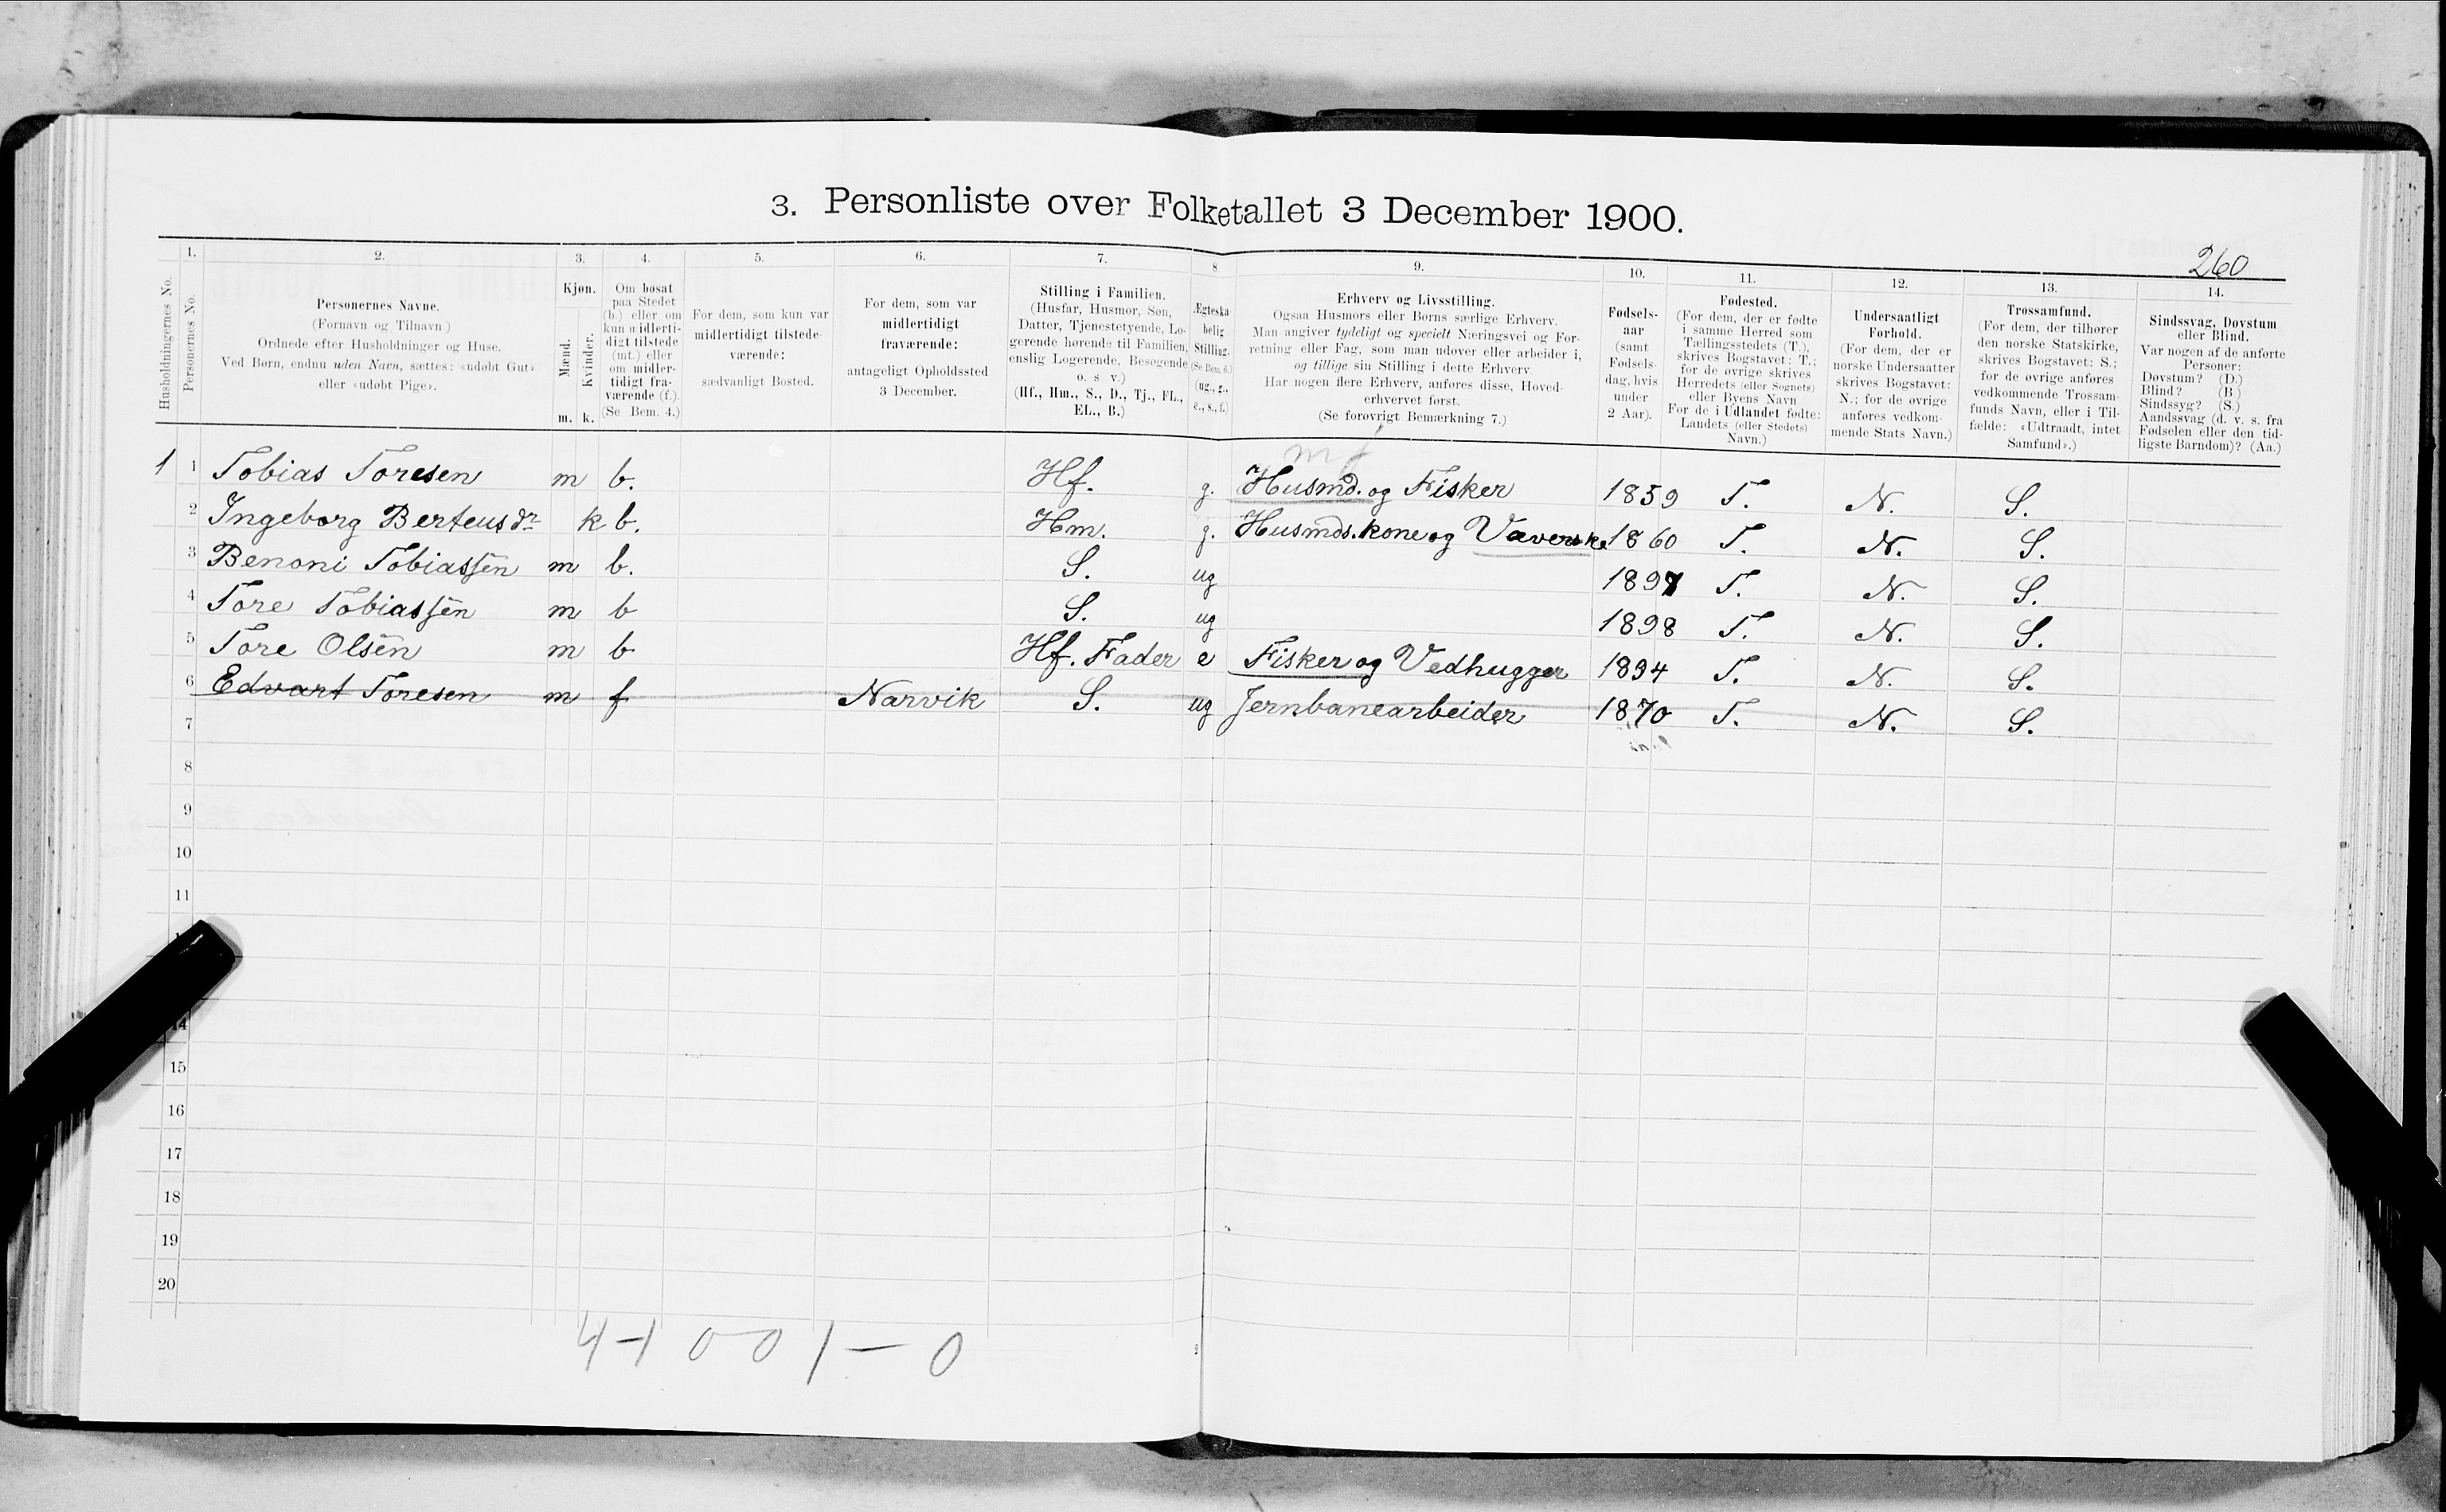 3. Personliste over Folketallet 3 December 1900.
260
1. 2. 3. 4. 5. 6. 7. 8 9. 10. 11. 12. 13. 14.
Husholdningernes No.
Personernes No.
Personernes Navne.
(Fornavn og Tilnavn)
Ordnede efter Husholdninger og Huse.
Ved Børn, endnu uden Navn, sættes: «udøbt Gut»
eller «udøbt Pige».
Kjøn.
Mænd.
Kvinder.
m. k.
Om bosat
paa Stedet
(b.) eller om
kun midlerti-
digt tilstede
(mt.) eller
om midler-
tidigt fra-
værende (f.).
(Se Bem. 4.)
For dem, som kun var
midlertidigt tilstede-
værende:
sædvanligt Bosted.
For dem, som var
midlertidigt
fraværende:
antageligt Opholdssted
3 December.
Stilling i Familien.
(Husfar, Husmor, Søn,
Datter, Tjenestetyende, Lo-
gerende hørende til Familien,
enslig Logerende, Besøgende
o. s v.)
(Hf., Hm., S., D., Tj., FL.,
EL., B.)
Ægteska-
belig
Stilling.
(Se Bem. 6.)
(ug., g.,
e., s., f.)
Erhverv og Livsstilling.
Ogsaa Husmors eller Børns særlige Erhverv.
Man angiver tydeligt og specielt Næringsvei og For-
retning eller Fag, som man udøver eller arbeider i,
og tillige sin Stilling i dette Erhverv.
Har nogen flere Erhverv, anføres disse, Hoved-
erhvervet først.
(Se forøvrigt Bemærkning 7.)
Fødsels-
aar
(samt
Fødsels-
dag, hvis
under
2 Aar).
Fødested.
(For dem, der er fødte
i samme Herred som
Tællingsstedets (T.),
skrives Bogstavet: T.;
for de øvrige skrives
Herredets (eller Sognets)
eller Byens Navn
For de i Udlandet fødte:
Landets (eller Stedets)
Navn.)
Undersaatligt
Forhold.
(For dem, der er
norske Undersaatter
skrives Bogstavet:
N.; for de øvrige
anføres vedkom-
mende Stats Navn.)
Trossamfund.
(For dem, der tilhører
den norske Statskirke,
skrives Bogstavet: S.;
for de øvrige anføres
vedkommende Trossam-
funds Navn, eller i Til-
fælde: «Udtraadt, intet
Samfund».)
Sindssvag, Døvstum
eller Blind.
Var nogen af de anførte
Personer:
Døvstum? (D.)
Blind? (B)
Sindssyg? (S.)
Aandssvag (d. v. s. fra
Fødselen eller den tid-
ligste Barndom)? (Aa.)
1 1 Tobias Toresen m b. Hf. g. Husmd. og Fisker 1859 T. N. S.
2 Ingeborg Berteusdr k b. Hm. g. Husmds. kone og Væverske 1860 T. N. S.
3 Benoni Tobiassen m b. S. ug 1897 T. N. S.
4 Tore Tobiassen m b S. ug 1898 T. N. S.
5 Tore Olsen m b Hf. Fader e Fisker og Vedhugger 1834 T. N. S.
6 Edvart Toresen m f Narvik S. ug Jernbanearbeider 1870 T. N. S.
7
8
9
10
11
14
15
16
17
18
19
20
4-1 0 0 1 - 0
2